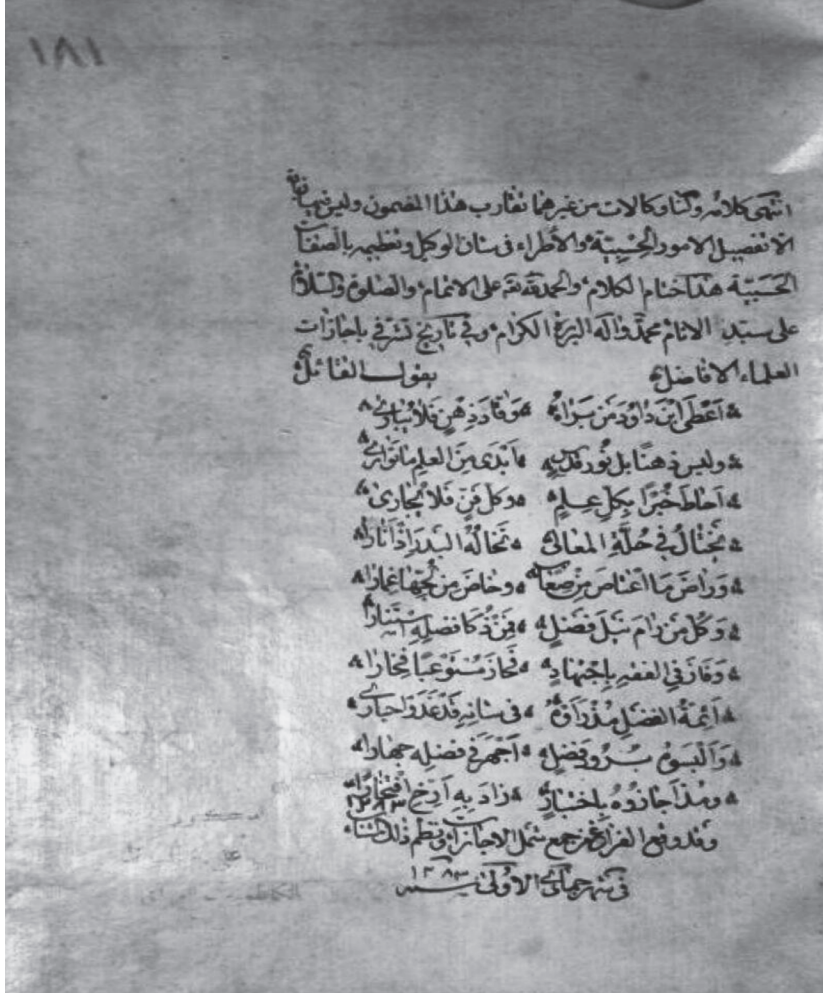 ١٨١
انتهى كلامه ولنا وكالات من غيرهما تقارب هذا المضمون وليس فيها
الا تفصيل الامور الحسبية والأطراء في شان الوكيل وتعظيمه بالصفات
الحسبية هذا ختام الكلام والحمد لله على الاتمام والصلوة والسلام
على سيد الانام محمد واله البررة الكرام وفي تاريخ تشرفي باجازات
العلماء الافاضل يقول القائل
أعطى ابن داود من براه وقاد ذهن فلا يبارى
وليس ذهنا بل نور قدس أبدى من العلم ما توارى
أحاط خبرا بكل علم وكل فن فلا يجارى
يختال في حلة المعالى تخاله البدر اذ أنارا
وراض ما اعتاص من صعاب وخاض من لجها غمارا
وكل من رام نيل فضل فمن ذكا فضله استنارا
وفاز في الفقه باجتهاد فحاز مستوعبا فخارا
أئمة الفضل مذ رأوه في شانه قد غدوا حيارى
واليوم فضل أجهر في فضله جهارا
ومذ أجازوه باختبار زاد به أرخ افتخارا
١٢٨٣
وقد وقع الفراغ من جمع شمل الاجازات ونظم ذلك
في شهر جمادى الاولى سنه ١٢٨٣